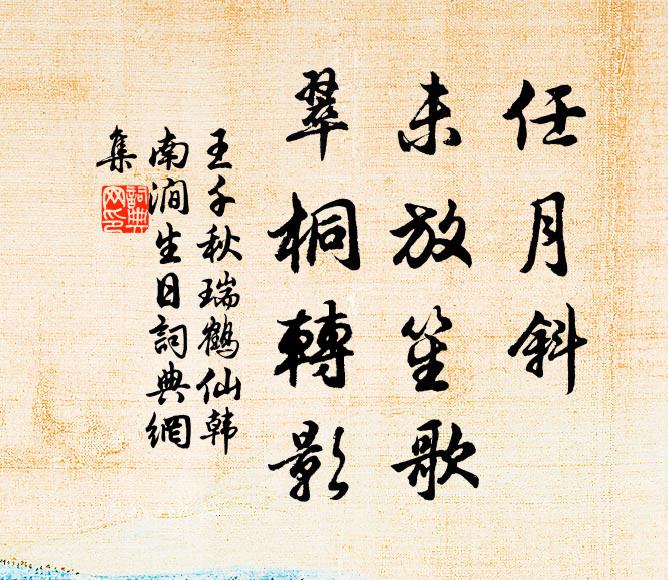 任月斜
未放笙歌
翠桐轉影
王千秋瑞鶴仙韩
南澗生日詞典網
集
詞典
网印